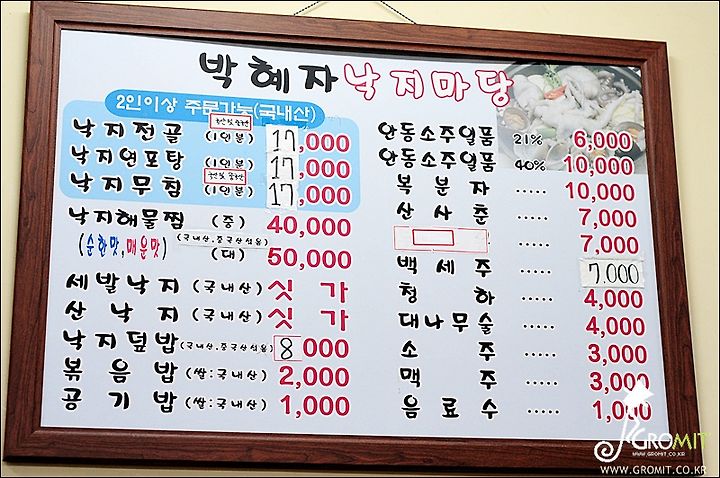 박혜자낙지마당
2인이상 주문가능(국내산)
낙지전골 (1인분) 17,000
낙지연포탕 (1인분) 17,000
낙지무침 (1인분) 17,000
낙지해물찜 (중) 40,000
(순한맛,매운맛) (국내산,중국산섞음) (대) 50,000
세발낙지 (국내산) 싯가
산낙지 (국내산) 싯가
낙지덮밥 (국내산,중국산섞음) 8000
볶음밥 (쌀:국내산) 2,000
공기밥 (쌀:국내산) 1,000
안동소주일품 21% 6,000
안동소주일품 40% 10,000
복분자 ..... 10,000
산사춘 ..... 7,000
..... 7,000
백세주 7,000
청하 ..... 4,000
대나무술 ..... 4,000
소주 ..... 3,000
맥주 ..... 3,000
음료수 ..... 1,000
GROMIT
WWW.GROMIT.CO.KR
WWW.GROMIT.CO.KR